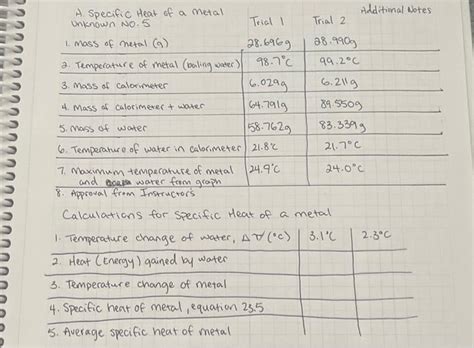 Additional Notes
A. Specific Heat of a metal Trial 1 Trial 2
unknown NO. 5
1. Mass of metal (g) 28.696g 28.990g
2. Temperature of metal (boiling water) 98.7°C 99.2°C
3. Mass of calorimeter 6.029g 6.211g
4. Mass of calorimeter + water 64.791g 89.550g
5. mass of water 58.762g 83.339g
6. Temperature of water in calorimeter 21.8°C 21.7°C
7. Maximum temperature of metal 24.9°C 24.0°C
and water from graph
8. Approval from Instructors
Calculations for Specific Heat of a metal
1. Temperature change of water, Δ T (°C) 3.1°C 2.3°C
2. Heat (Energy) gained by water
3. Temperature change of metal
4. Specific heat of metal, equation 25.5
5. Average specific heat of metal